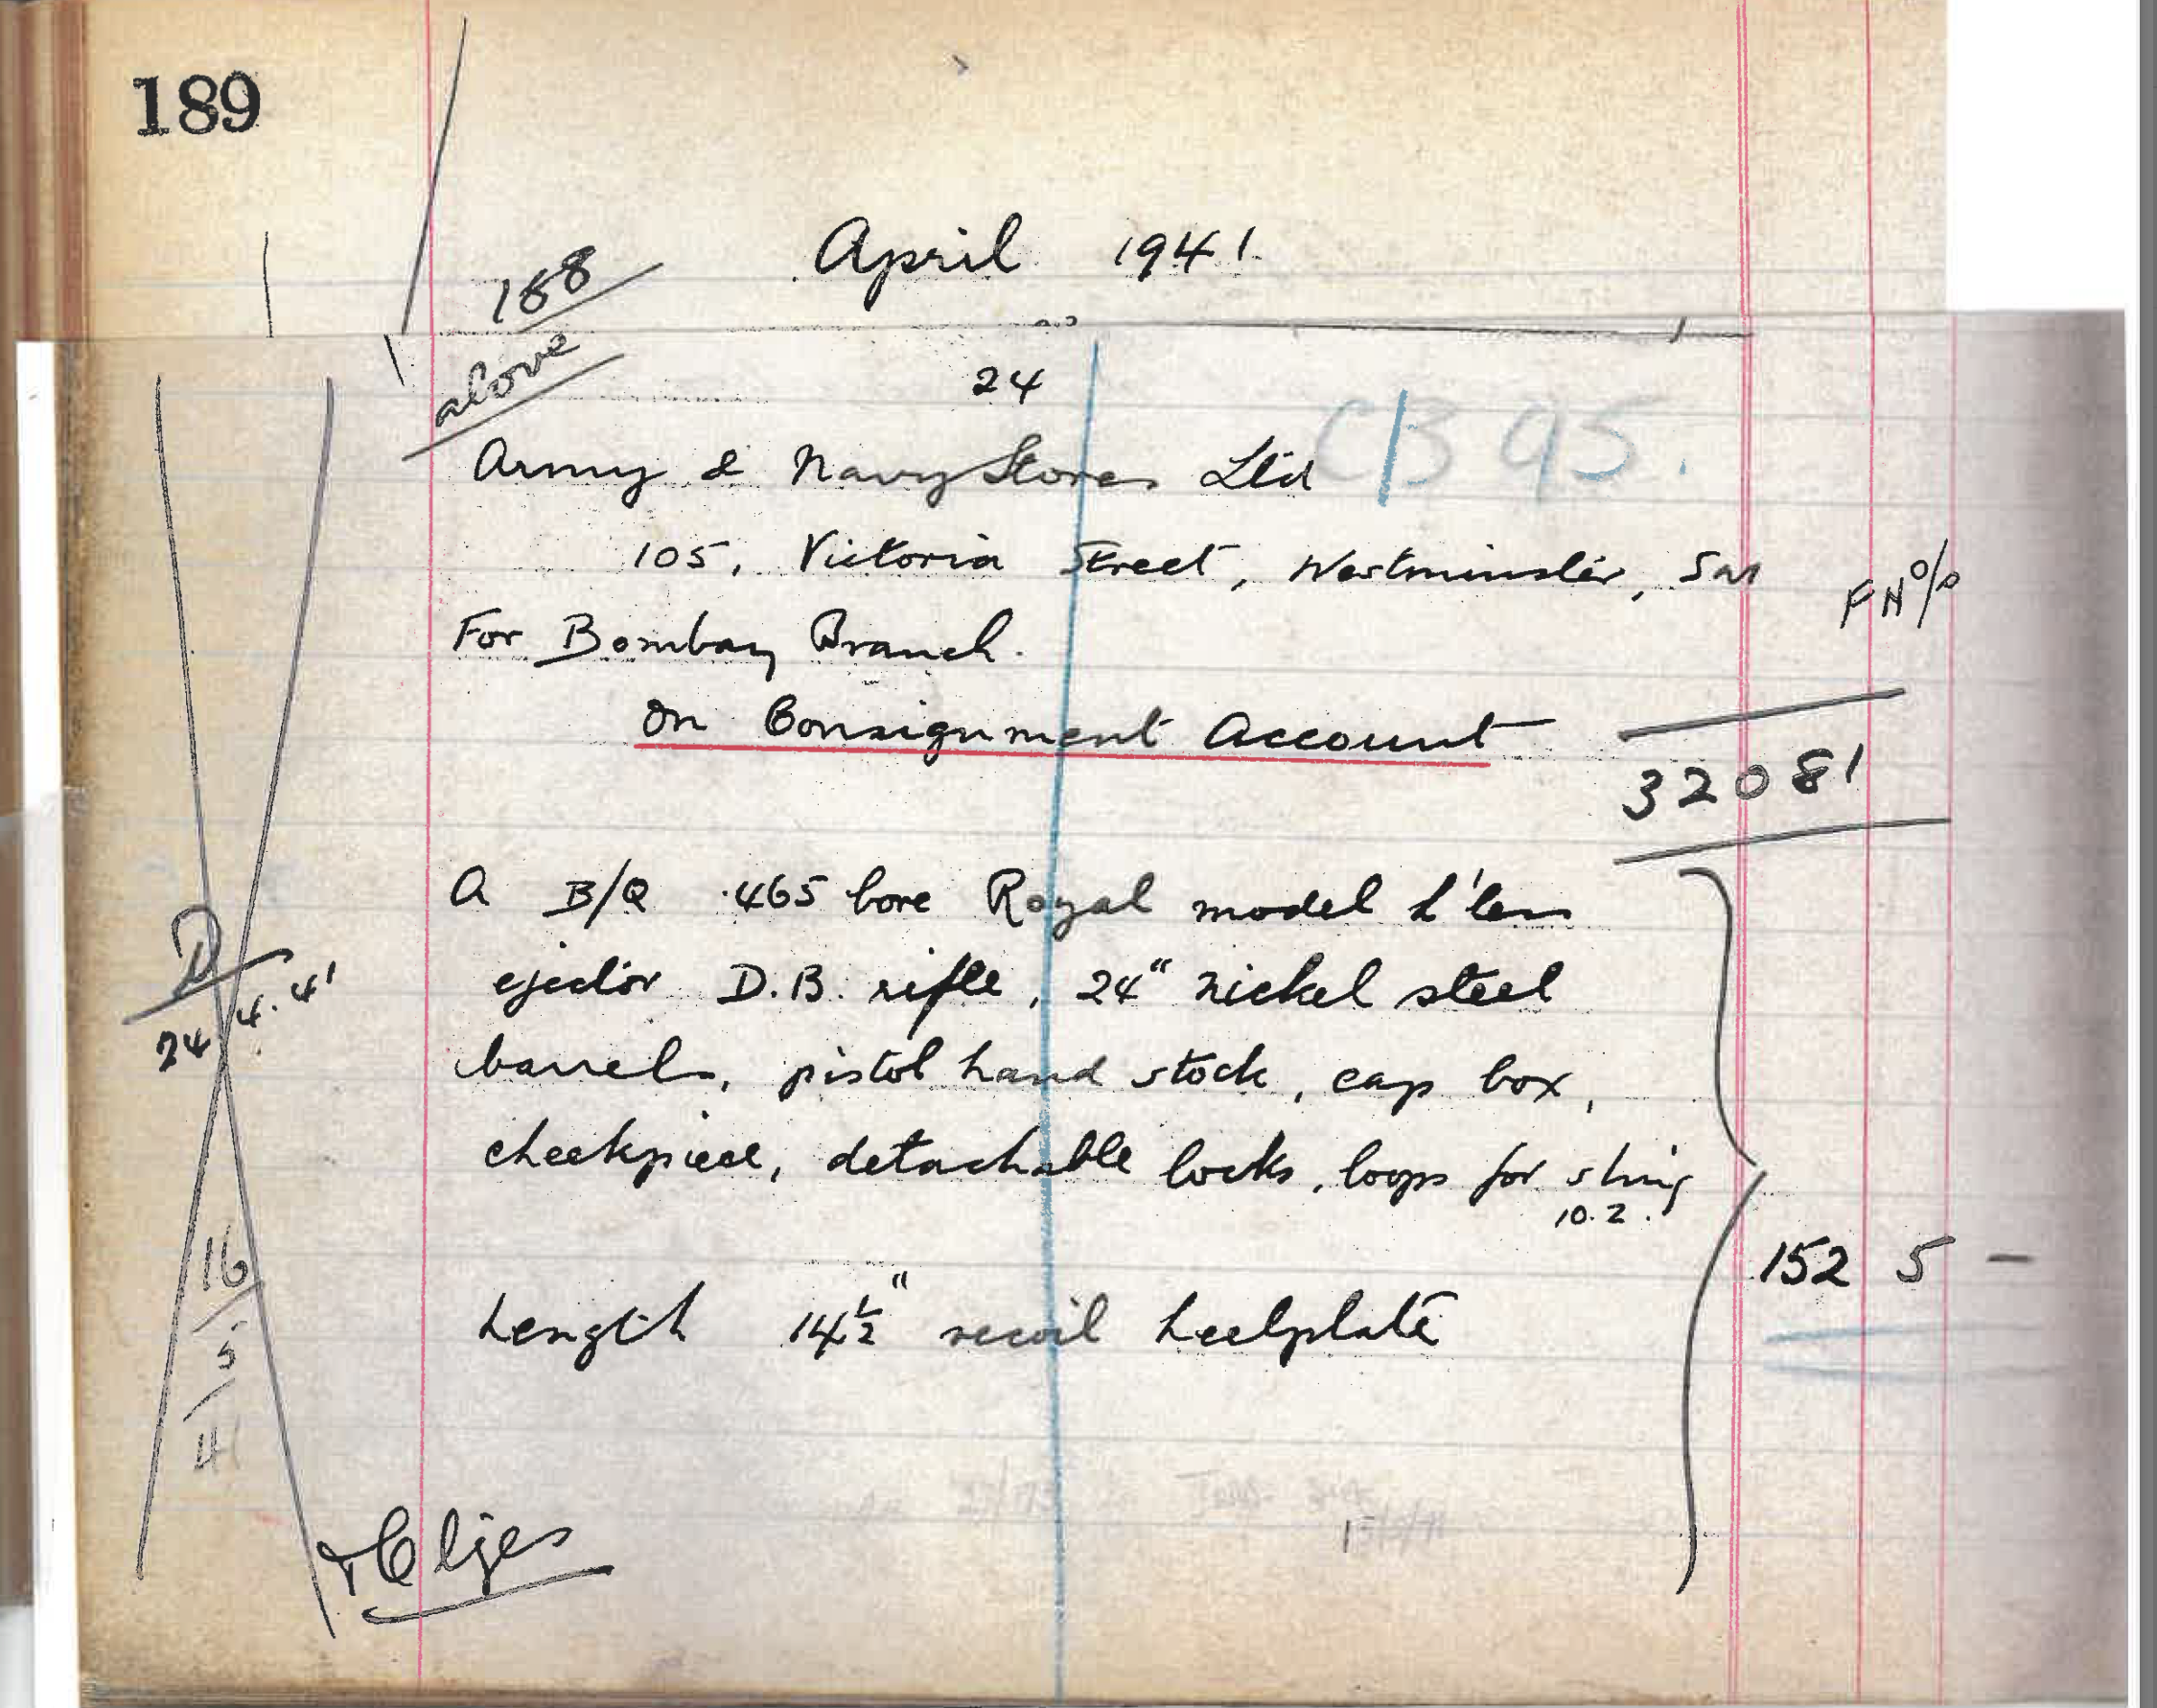 189
April 1941
188
above
24
CB 95.
Army & Navy Stores Ltd
105, Victoria Street, Westminster, SW
For Bombay Branch.
On Consignment Account
32081
A B/Q .465 bore Royal model h'less
ejector D.B. rifle, 24" nickel steel
barrels, pistol hand stock, cap box,
cheekpiece, detachable locks, loops for sling
10.2.
152 5 –
Length 14½" recoil heelplate
D
24.4.41
16
5
41